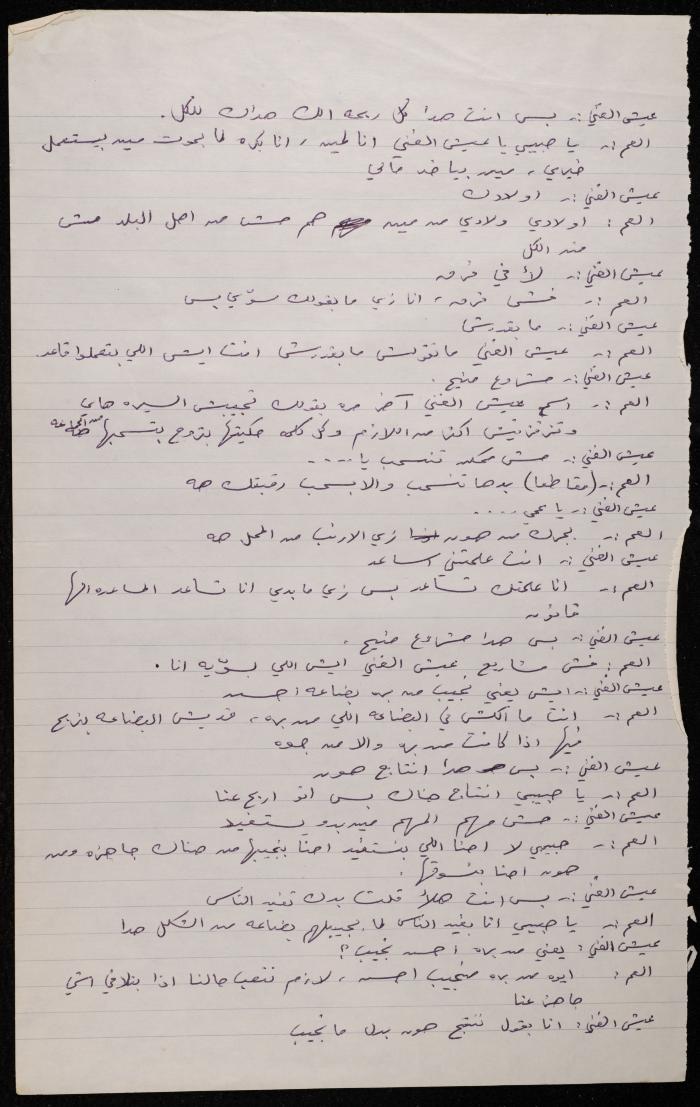 عيش الغني :- بس انت هدا كل ربحه الك هداك للكل.
العم :- يا حبيبي يا عيش الغني انا لمين ، انا بكره لما بموت مين بيستعمل
خيري ، مين بياخد مالي
عيش الغني :- اولادك
العم : اولادي ولادي من مين هم مش من اهل البلد مش
من الكل
عيش الغني :- لأ في فرق
العم :- فش فرق ، انا زي ما بقولك سوّي بس
عيش الغني :- ما بقدرش
العم :- عيش الغني ما تقولش ما بقدرش انت ايش اللي بتعملوا قاعد
عيش الغني :- مشروع منيح .
العم :- اسمع عيش الغني آخر مره بقولك تجيبش السيره هاي
وتتفزلكش اكثر من اللازم وكل كلمه حكيتها بتروح بتسحبها من الجماعه
عيش الغني :- مش ممكن تنسحب يا ....
العم :- (مقاطعا) بدها تنسحب والا بسحب رقبتك هه
عيش الغني :- يا عمي ....
العم :- بجرك من هون زي الارنب من المحل هه
عيش الغني :- انت علمتني اساعد
العم :- انا علمتك تساعد بس زي ما بدي انا تساعد المساعده الها
قانون
عيش الغني :- بس هدا مشروع منيح .
العم : فش مشاريع عيش الغني ايش اللي بسوّيه انا .
عيش الغني :- ايش يعني نجيب من بره بضاعه احسن
العم :- انت ما الكش في البضاعه اللي من بره ، قديش البضاعه بنربح
فيها اذا كانت من بره والا من جوه
عيش الغني :- بس هدا انتاج هون
العم :- يا حبيبي انتاج هناك بس انو اربح عنا
عيش الغني :- مش مهم المهم مين بدو يستفيد
العم :- حبيبي لا احنا اللي بنستفيد احنا بنجيبها من هناك جاهزه ومن
هون احنا بنسوقها .
عيش الغني :- بس انت هلأ قلت بدك تفيد الناس
العم :- يا حبيبي انا بفيد الناس لما بجيبلهم بضاعه من الشكل هدا
عيش الغني : يعني من بره احسن نجيب ؟
العم : ايوه من بره منجيب احسن ، لازم نتعب حالنا اذا بنلاقي اشي
جاهز عنا
عيش الغني : انا بقول ننتج هون بدل ما نجيب